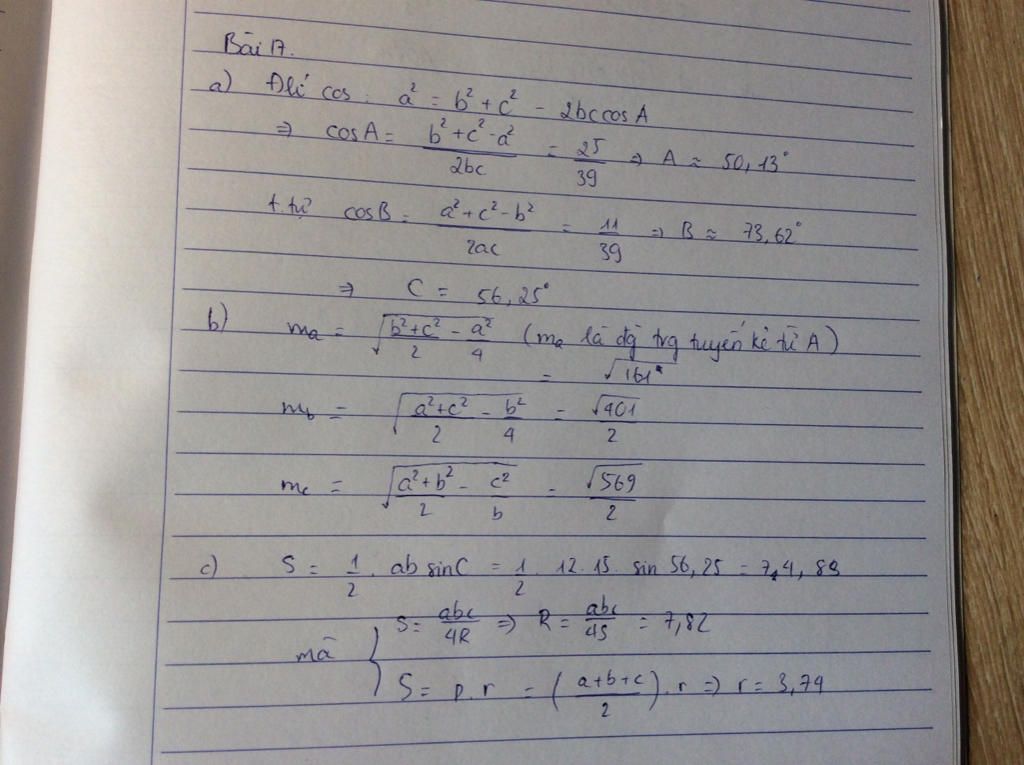 Bài 17.
a) Đlí cos: a² = b² + c² - 2bc cos A
⇒ cosA = (b² + c² - a²)/2bc = 25/39 ⇒ A ≈ 50,13°
t.tự cosB = (a² + c² - b²)/2ac = 11/39 ⇒ B ≈ 73,62°
⇒ C = 56,25°
b) ma = √((b² + c²)/2 - a²/4) (ma là đg trg tuyến kẻ từ A)
= √161
mb = √((a² + c²)/2 - b²/4) = √401/2
mc = √((a² + b²)/2 - c²/b) = √569/2
c) S = 1/2 . ab sinC = 1/2 . 12 . 15 . sin 56,25 = 74,83
S = abc/4R ⇒ R = abc/4S = 7,82
mà
S = p.r = ((a+b+c)/2).r ⇒ r = 3,74